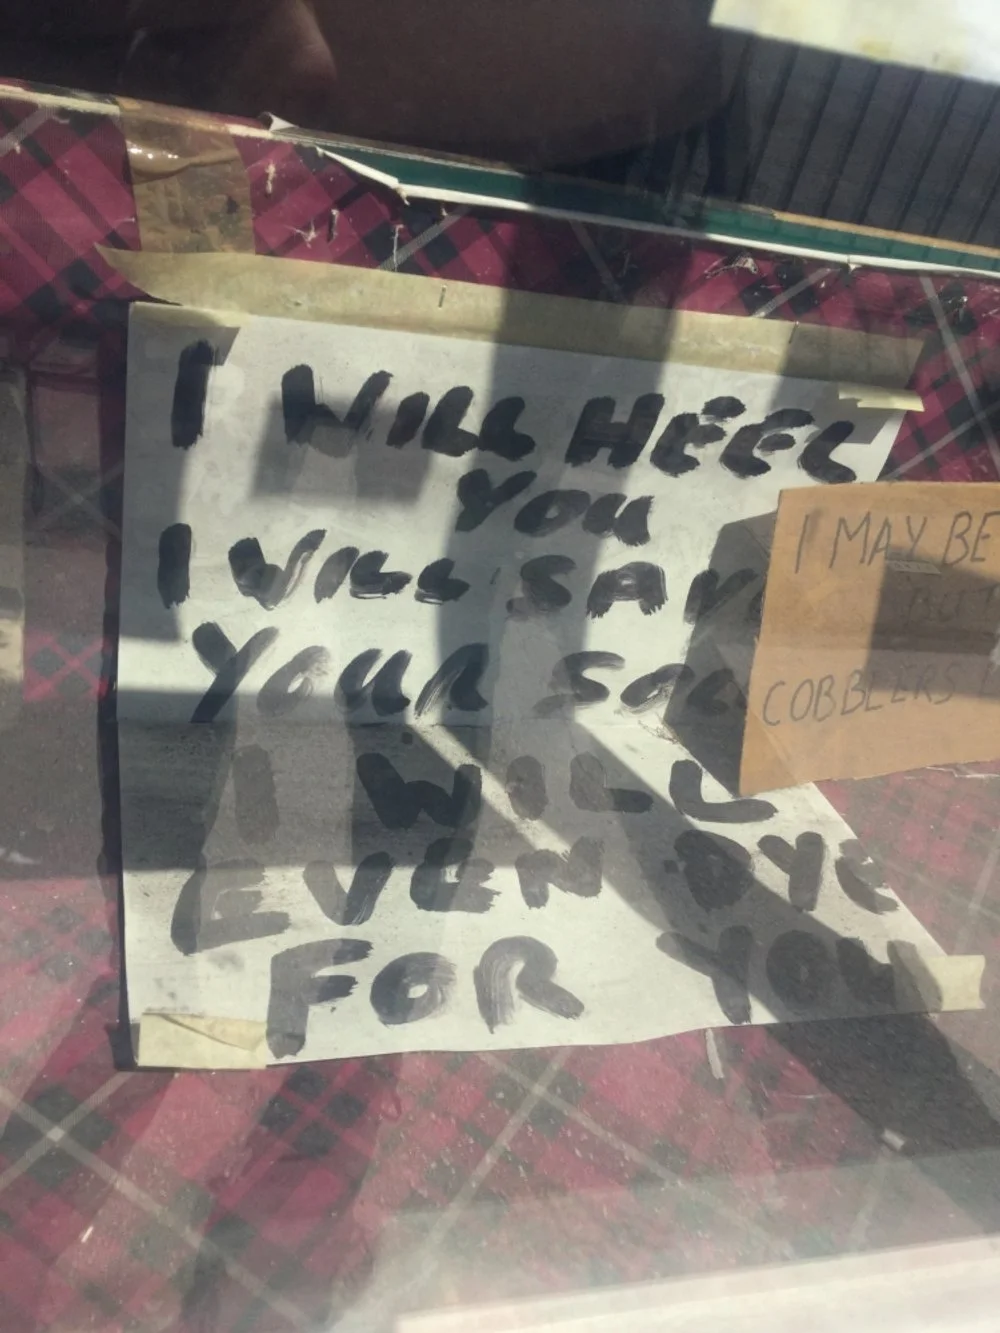 I WILL HEEL
YOU
I WILL SAV
YOUR SO
I WILL
EVEN DYE
FOR YOU
I MAY BE
BUT
COBBLERS